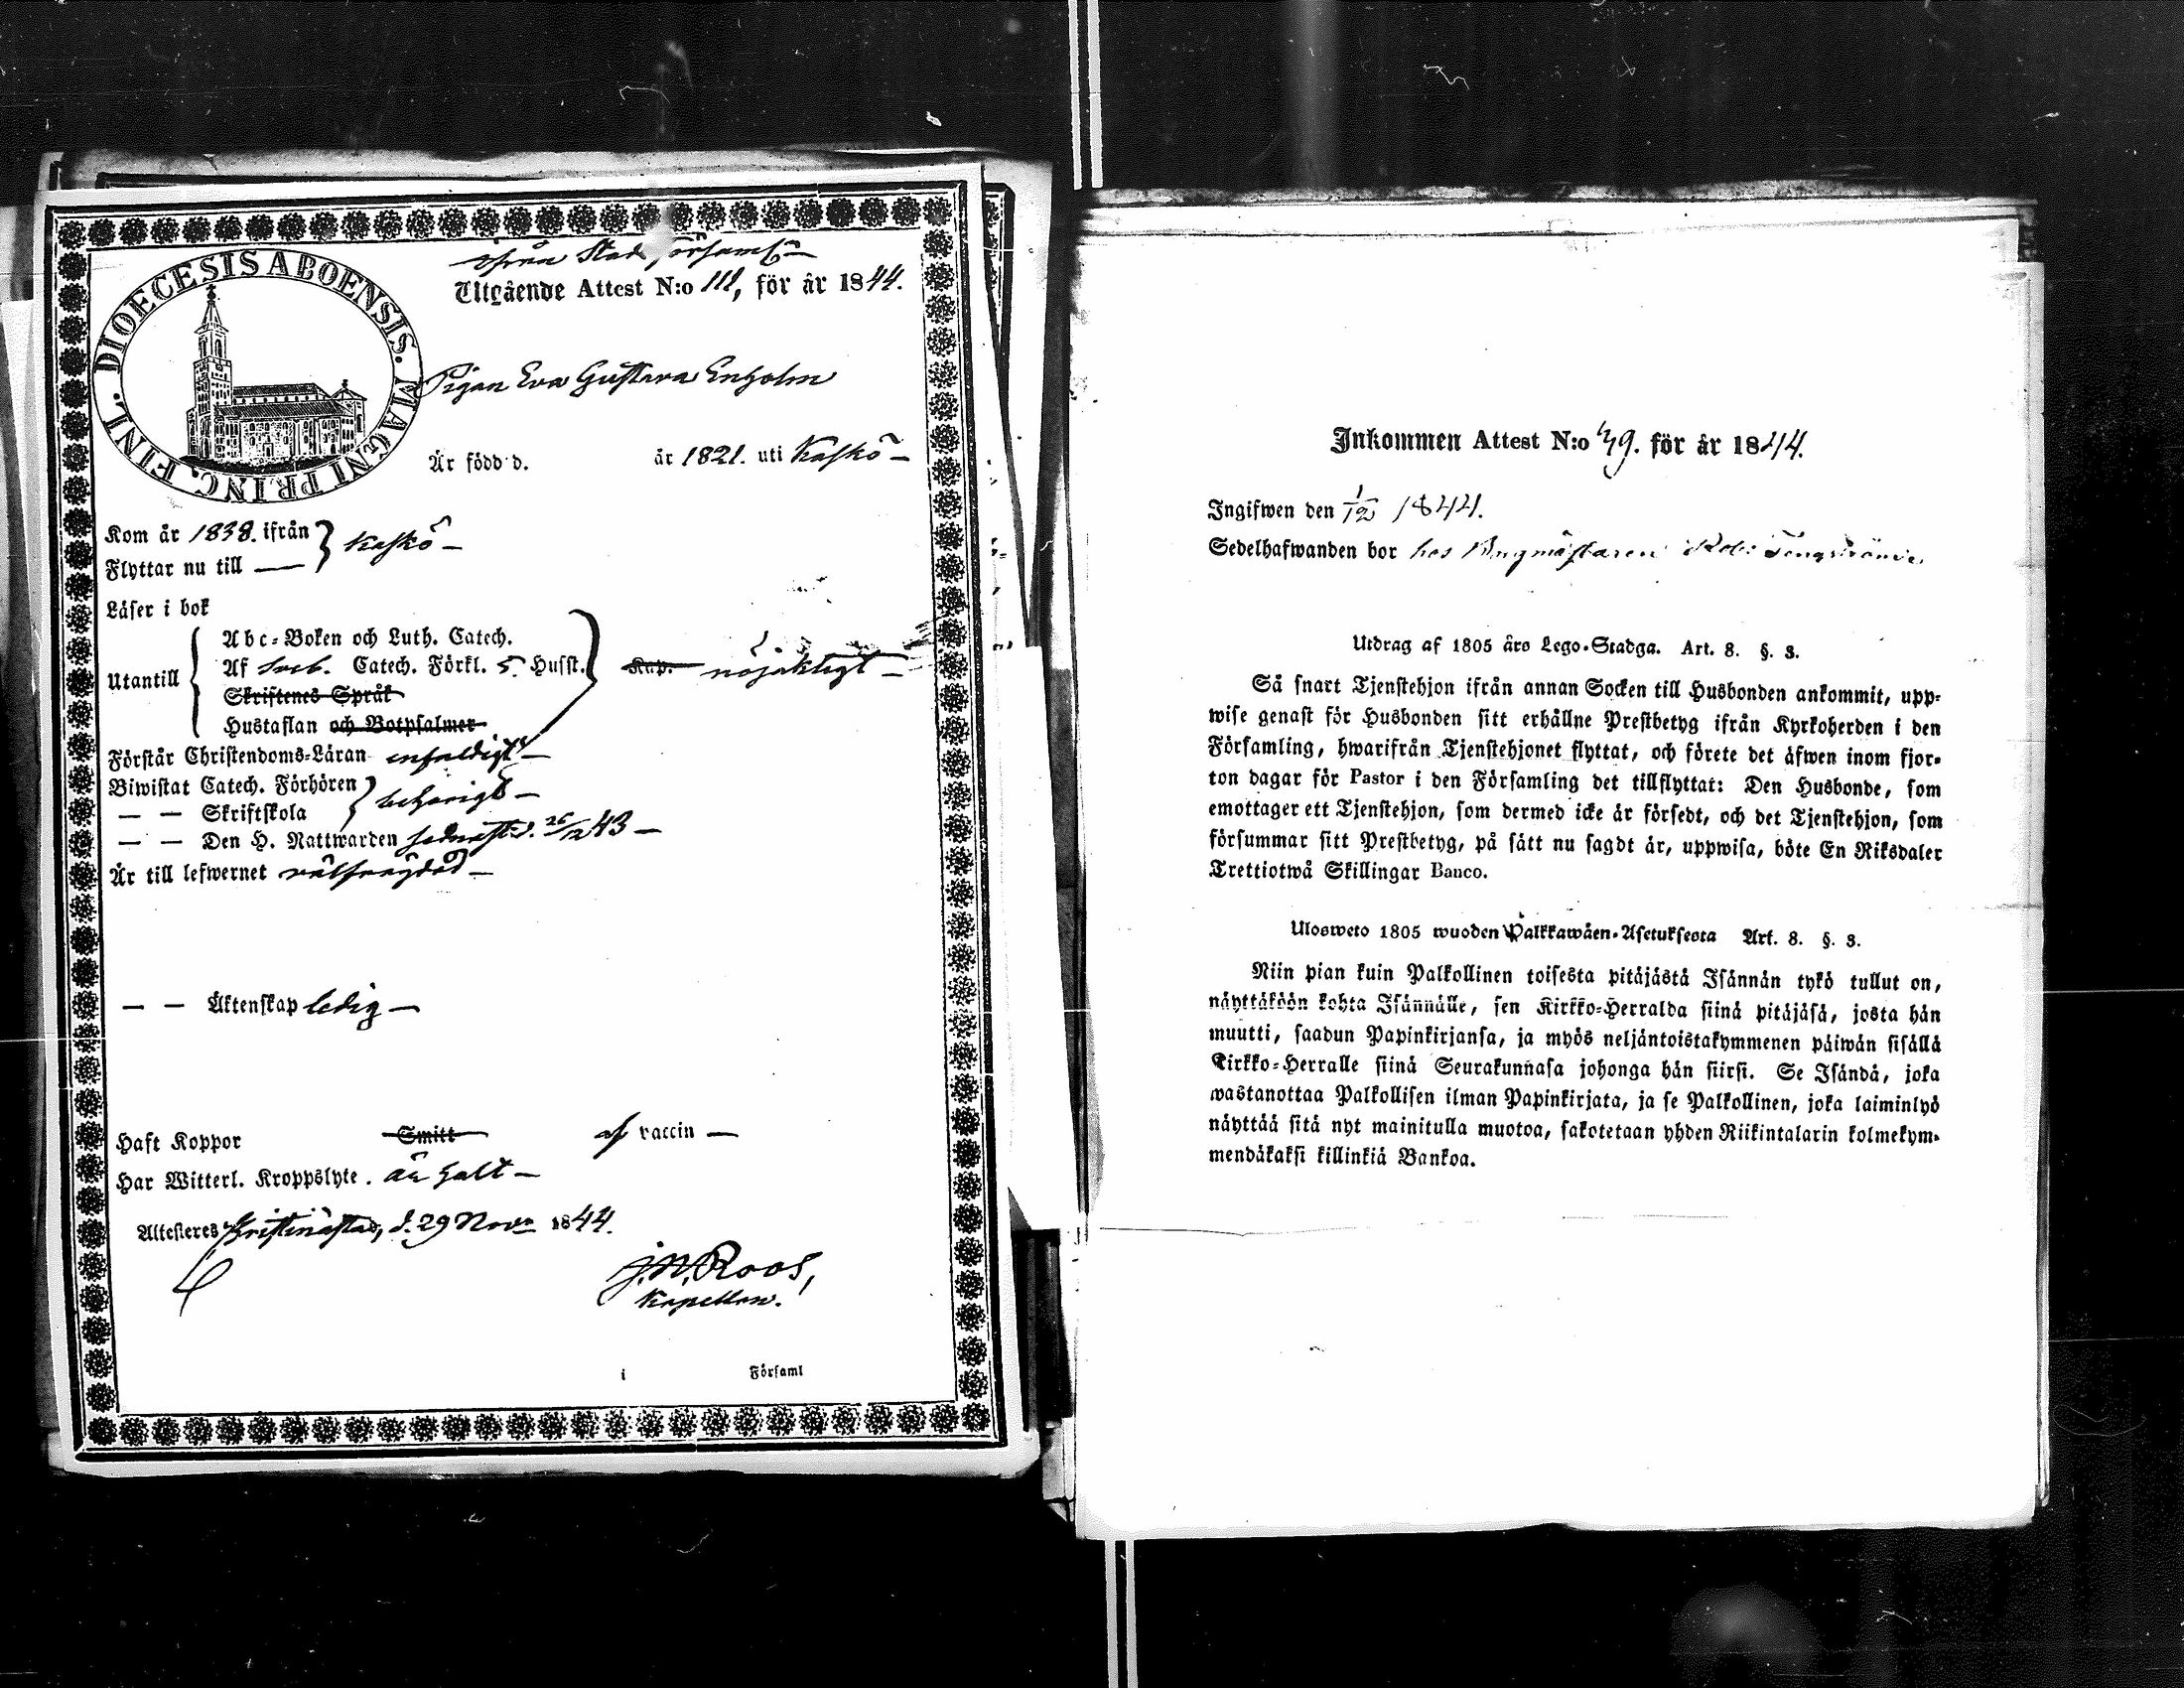 DIOECESIS ABOENSIS. MAGNI PRINC. FINL.
ifrån Stads församl
Utgående Attest N:o 111, för år 1844.
Pigan Eva Gustava Enholm
Är född d. år 1821. uti Kaskö
Kom år 1838. ifrån
Flyttar nu till — } Kaskö —
Läser i bok
Utantill
Abc-Boken och Luth. Catech.
Af Sveb. Catech. Förkl. 5. Husst. } Kap. nöjaktigt —
Skriftenes Språk
Hustaflan och Botpsalmer
Förstår Christendoms-Läran enfaldigt —
Biwistat Catech. Förhören
— — Skriftskola } behörigt —
— — Den H. Nattwarden sednast d. 26/12 43 —
Är till lefwernet välfrägdad —
— — Äktenskap ledig —
Haft Koppor Smitt af vaccin —
Har Witterl. Kroppslyte. är halt —
Attesteres Kristinæstad, d. 29 Novr 1844.
J. N. Roos,
Kapellan.
i Församl
Inkommen Attest N:o 49. för år 1844.
Ingifwen den 1/12 1844.
Sedelhafwanden bor hos
Utdrag af 1805 års Lego-Stadga. Art. 8. §. 3.
Så snart Tjenstehjon ifrån annan Socken till Husbonden ankommit, upp-
wise genast för Husbonden sitt erhållne Prestbetyg ifrån Kyrkoherden i den
Församling, hwarifrån Tjenstehjonet flyttat, och förete det äfwen inom fjor-
ton dagar för Pastor i den Församling det tillflyttat: Den Husbonde, som
emottager ett Tjenstehjon, som dermed icke är försedt, och det Tjenstehjon, som
försummar sitt Prestbetyg, på sätt nu sagdt är, uppwisa, böte En Riksdaler
Trettiotwå Skillingar Banco.
Ulosweto 1805 wuoden Palkkawäen-Asetuksesta Art. 8. §. 3.
Niin pian kuin Palkollinen toisesta pitäjästä Isännän tykö tullut on,
näyttäköön kohta Isännälle, sen Kirkko-Herralda siinä pitäjäsä, josta hän
muutti, saadun Papinkirjansa, ja myös neljäntoistakymmenen päiwän sisällä
Kirkko-Herralle siinä Seurakunnasa johonga hän siirsi. Se Isändä, joka
wastanottaa Palkollisen ilman Papinkirjata, ja se Palkollinen, joka laiminlyö
näyttää sitä nyt mainitulla muotoa, sakotetaan yhden Riikintalarin kolmekym-
mendäkaksi killinkiä Bankoa.